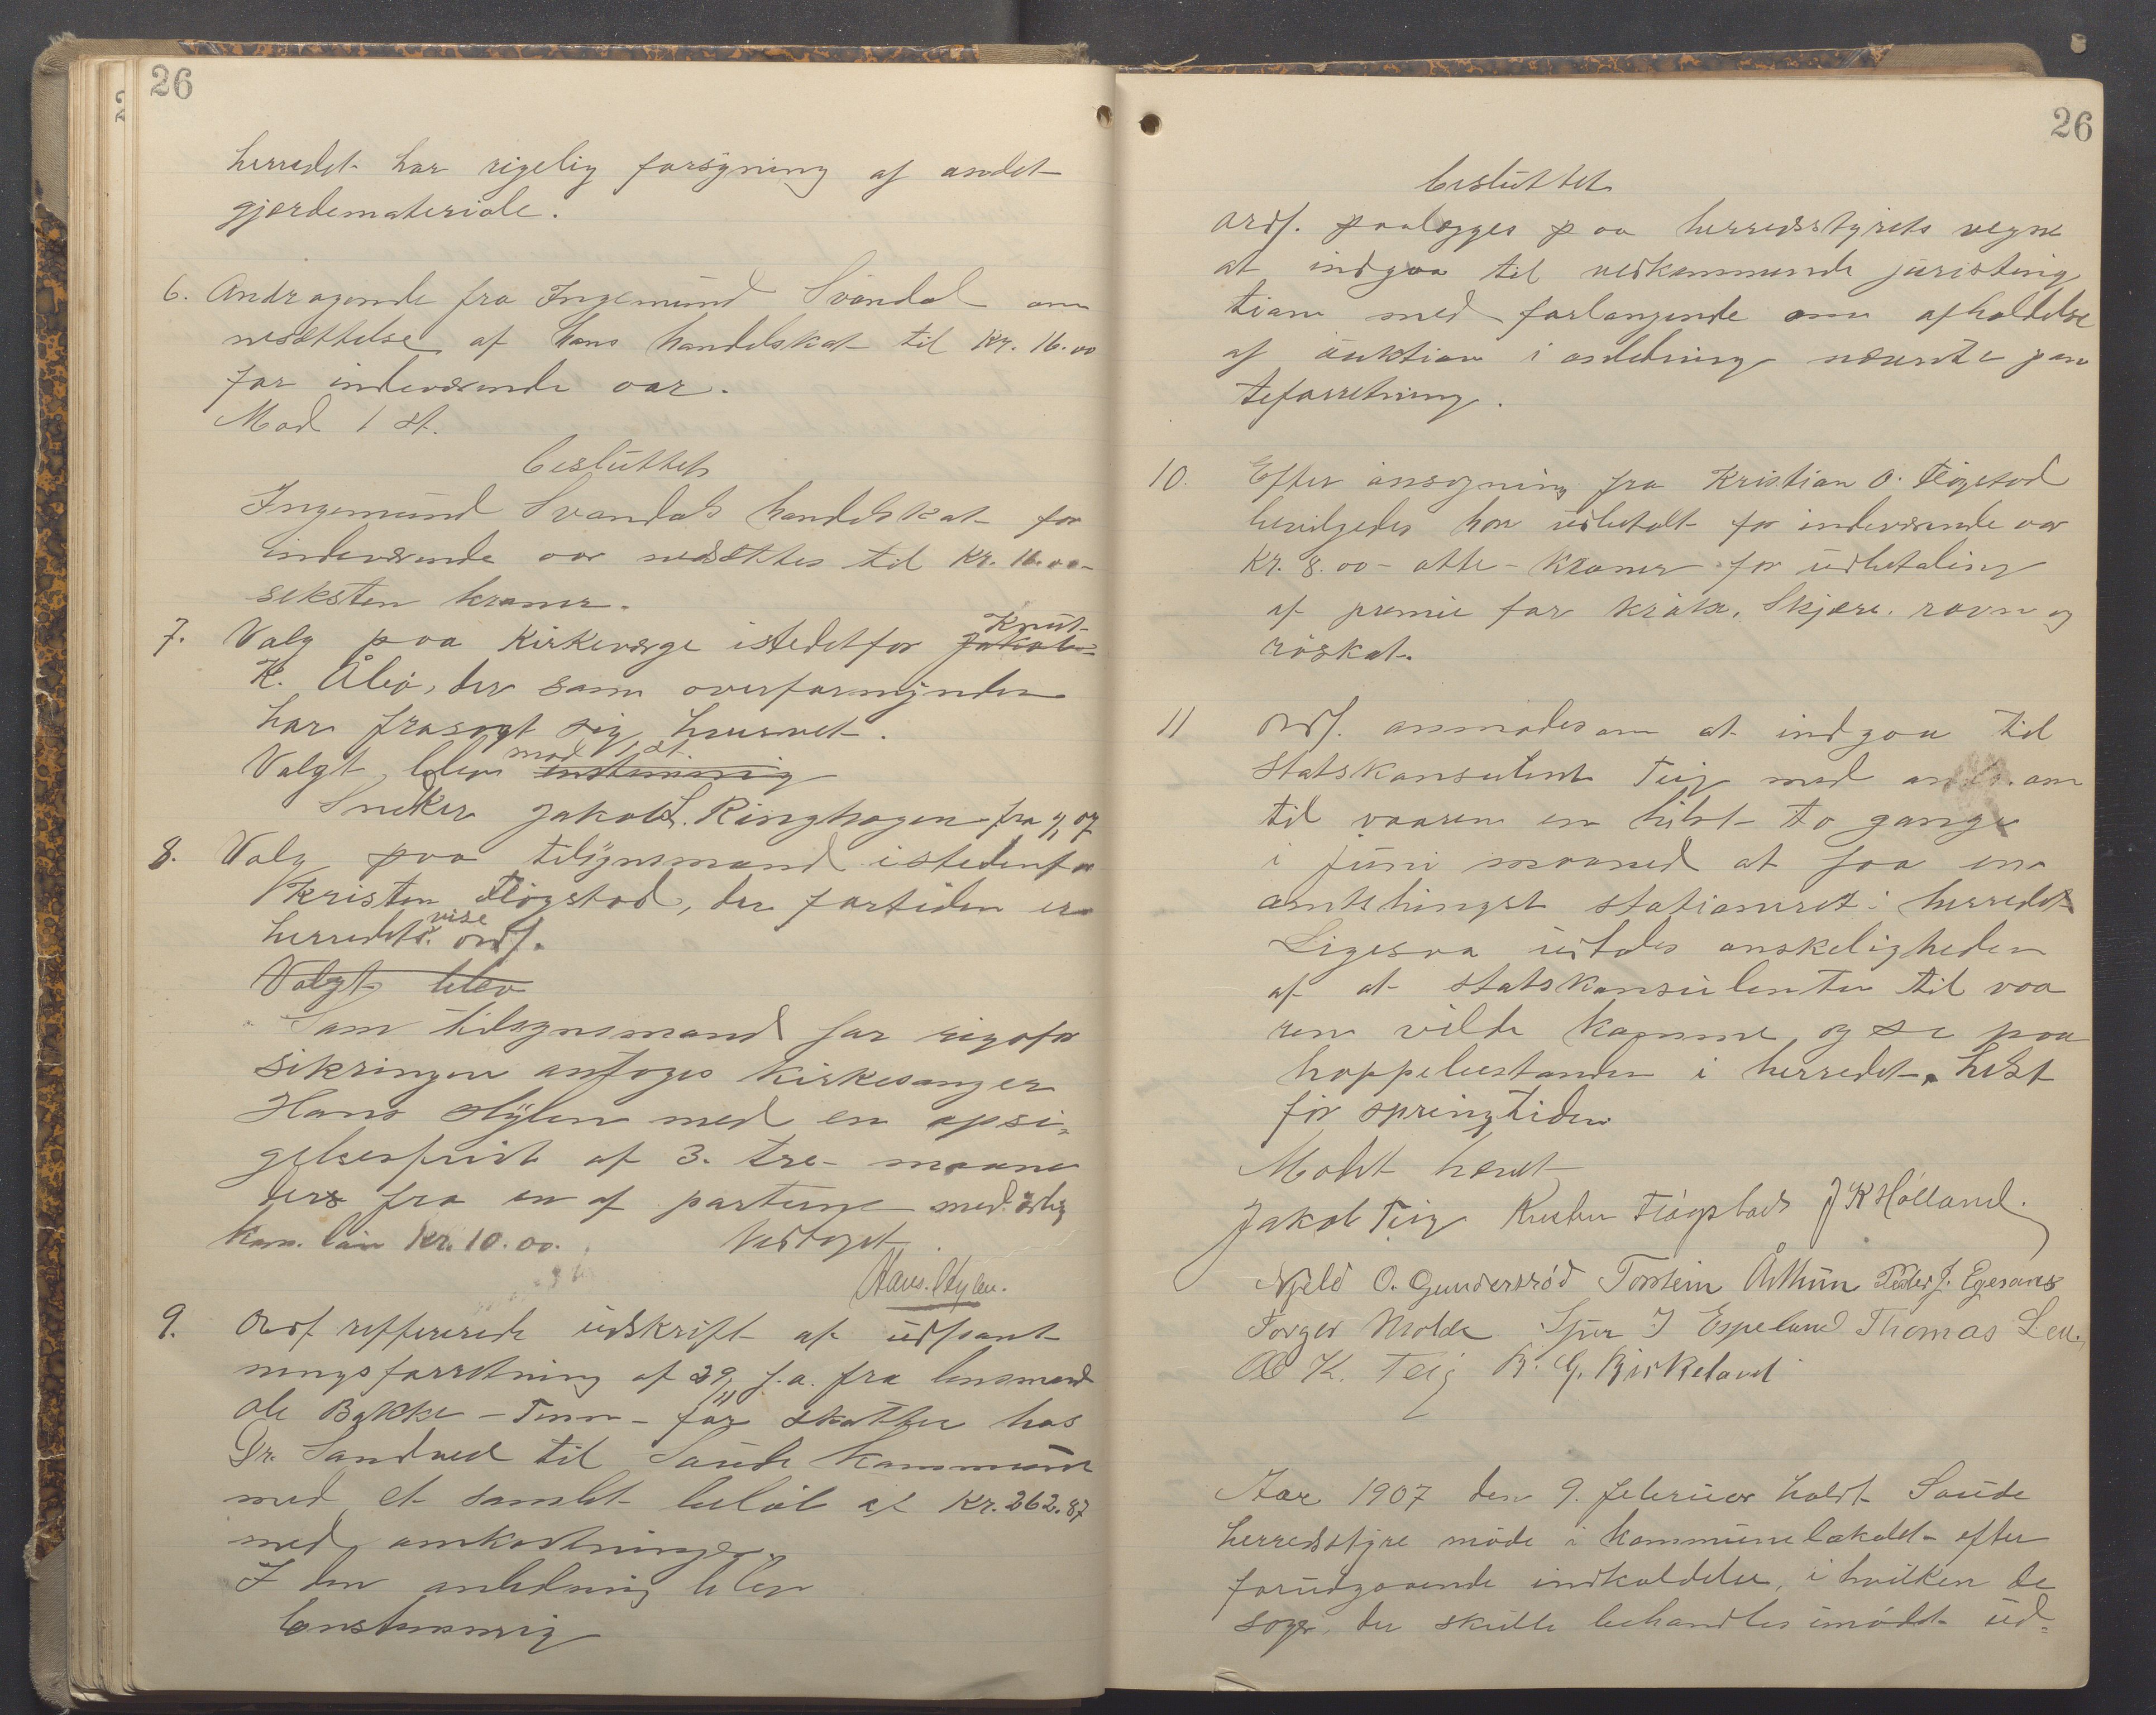 26
herredet har rigelig forsyning af andet
gjerdemateriale.
6. Andragende fra Ingemund Svandal om
nedsettelse af hans handelskat til Kr. 16.00
for indeværende aar.
Mod 1 st.
besluttet
Ingemund Svandals handelskat for
indeværende aar nedsættes til Kr. 16.00-
seksten kroner.
7. Valg paa Kirkeværge istedetfor Jakob Knut
K. Åbø, der som overformynder
har frasagt sig hvervet.
Valgt blev enstemmig mod 1 st.
Snedker Jakob L. Ringhagen fra 1/1 07
8. Valg paa tilsynsmand istedenfor
Kristen Fløgstad, der fortiden er
herredets vise ordf.
Valgt blev
Som tilsynsmand for
sikringen antoges kirkesanger
Hans Hylen med en opsi-
gelsesfrist af 3. tre- maane
ders fra en af parterne med årlig
kom. løn Kr. 10.00. Vedtaget
Hans. Hylen.
9. Ordf. reffererede udskrift af udpant
ningsforretning af 29/11 f.a. fra lensmand
Ole Bakke - Tinn - for skatter hos
Dr. Sandved til Saude kommune
med et samlet beløb af Kr. 262.87
med omkostninger.
I den anledning blev
Enstemmig
26
besluttet
Ordf. paalægges paa herredsstyrets vegne
at indgaa til vedkommende juristing
tion med forlangende om afholdelse
af auktion i anledning nævnte pan
teforretning.
10. Efter ansøgning fra Kristian O. Fløgstad
bevilgedes har udbetalt for indeværende aar
Kr. 8.00 - otte - Kroner for udbetaling
af premie for kråke, Skjære. ravn og
røskat.
11 Ordf. anmodes om at indgaa til
Statskonsulent Teig med om
til vaaren en helst to gange
i juni maaned at faa en
amtshingst stationeret i herredet
Ligesaa udtales ønskeligheden
af at statskonsulenten til vaa
ren vilde komme og se paa
hoppebestanden i herredet, helst
før springtiden
Mødet hævet
Jakob Teig Kristen Fløgstad J K Hølland.
Njeld O. Gundersrød Torstein Årthun Peder J. Egesans
Torger Molde Sjur J Espeland Thomas
Ole K. Teig R. G. Birkeland
Aar 1907 den 9. februar holdt Saude
herredsstyre møde i kommunelokalet efter
forudgaaende indkaldelse, i hvilken de
sager, der skulle behandles i mødet ud-